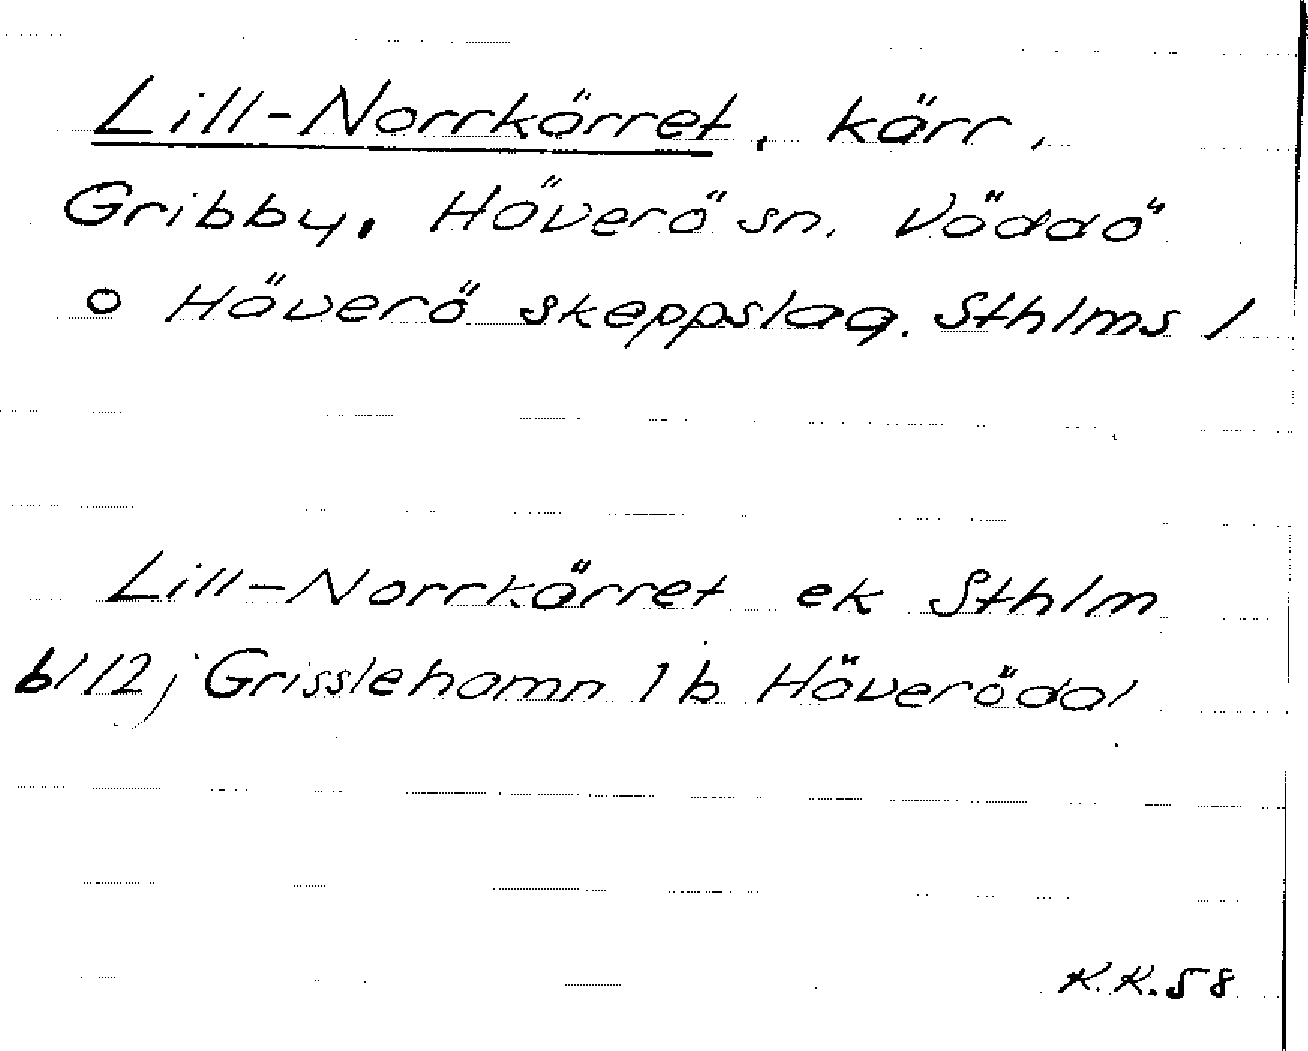 Lill-Norrkärret, kärr,
Gribby, Häverö sn. Väddö
o Häverö skeppslag. Sthlms l
Lill-Norrkärret ek Sthlm
bl 12j Grisslehamn 1b Häverödal
K.K.58